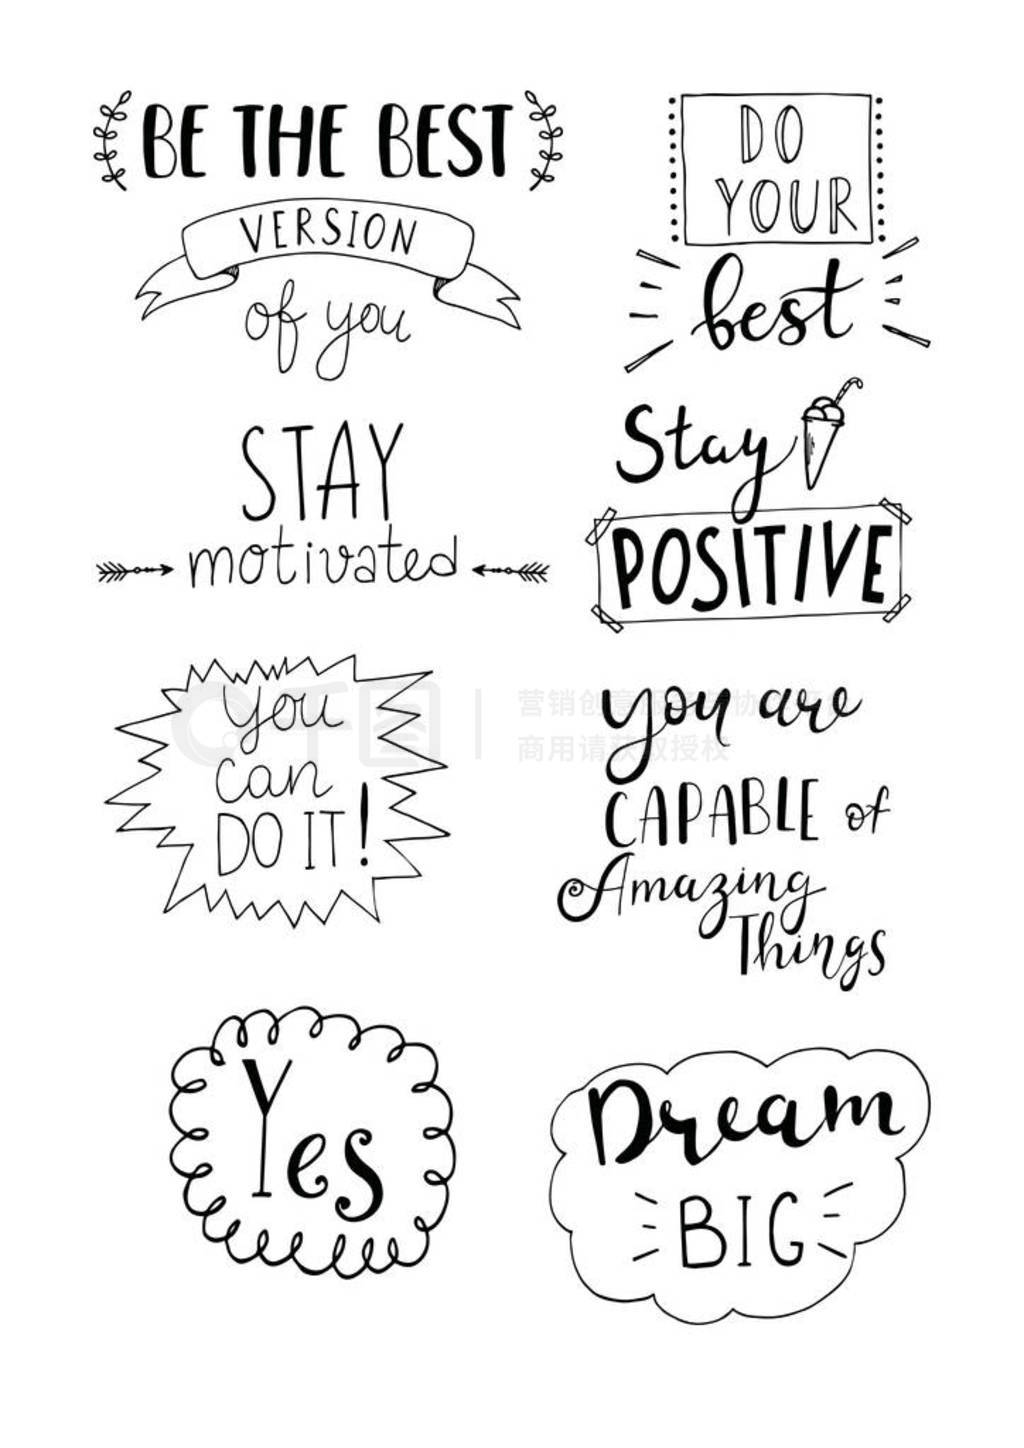 BE THE BEST
VERSION
of you
DO
YOUR
best
STAY
motivated
Stay
POSITIVE
you
can
DO IT!
you are
CAPABLE of
Amazing
Things
Yes
Dream
BIG
千图
营销创意服务与协作平台
商用请获取授权